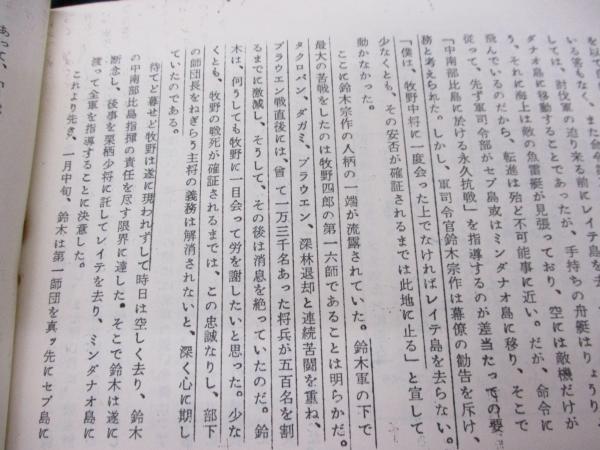 を以て
いる筈もなく、また命令
しては、討伐軍の迫り来る前にレイテ島を去
ダナオ島に移動することであったが、手持ちの舟艇はひょうり
う、それに海上は敵の魚雷艇が見張っており、空には敵機だけが
飛んでいるのだから、転進は殆ど不可能事に近い。だが、命令に
従って、先ず軍司令部がセブ島或はミンダナオ島に移り、そこで
「中南部比島に於ける永久抗戦」を指導するのが差当たっての要
務と考えられた。しかし、軍司令官鈴木宗作は幕僚の勧告を斥け、
「僕は、牧野中将に一度会った上でなければレイテ島を去らない。
少なくとも、その安否が確証されるまでは此地に止る」と宣して
動かなかった。
ここに鈴木宗作の人柄の一端が流露されていた。鈴木軍の下で
最大の苦戦をしたのは牧野四郎の第一六師であることは明らかだ。
タクロバン、ダガミ、ブラウエン、深林退却と連続苦闘を重ね、
ブラウエン戦直後には、曾て一万三千名あった将兵が五百名を割
るまでに激減し、そうして、その後は消息を絶っていたのだ。鈴
木は、何うしても牧野に一目会って労を謝したいと思った。少な
くとも、牧野の戦死が確証されるまでは、この忠誠なりし、部下
の師団長をねぎらう主将の義務は解消されないと、深く心に期し
ていたのである。
待てど暮せど牧野は遂に現われずして時日は空しく去り、鈴木
の中南部比島指揮の責任を尽す限界に達した。そこで鈴木は遂に
断念し、後事を栗栖少将に託してレイテを去り、ミンダナオ島に
渡って全軍を指導することに決意した。
これより先き、一月中旬、鈴木は第一師団を真ッ先にセブ島に
あって、